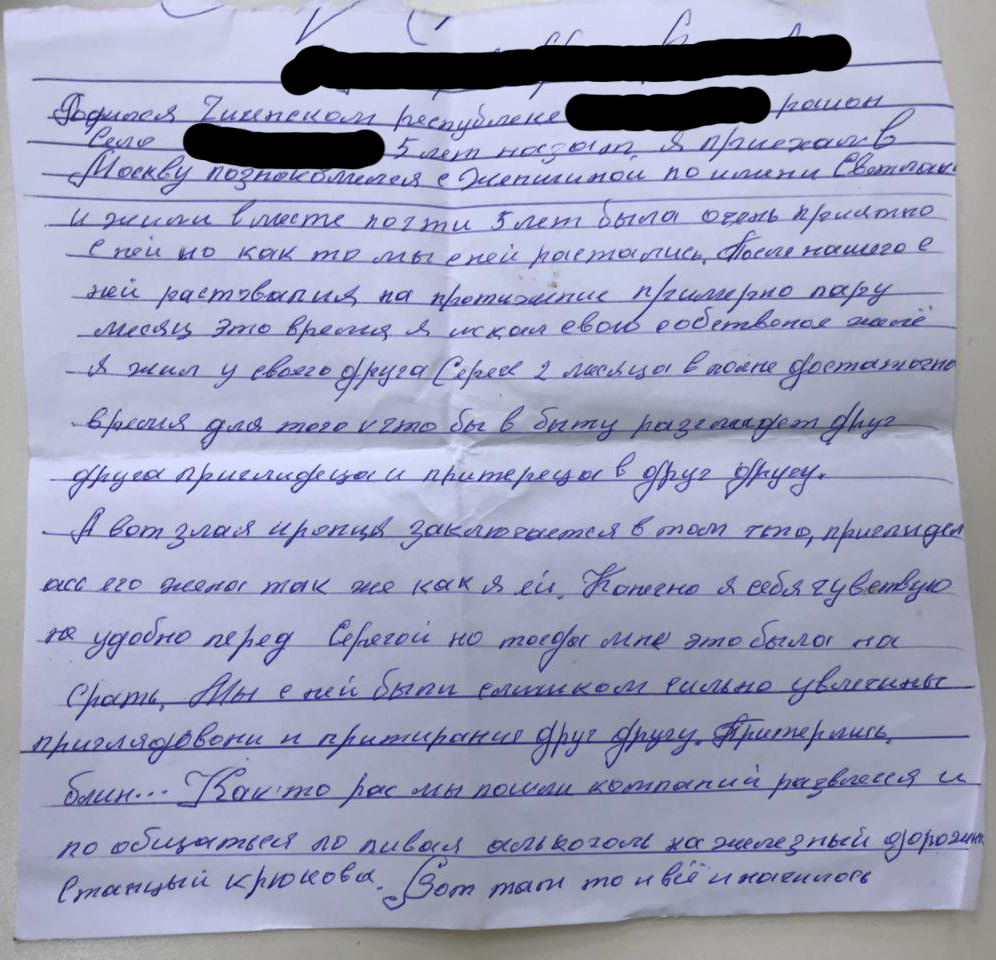 Родился Чиченском республеке район
Село 5 лет назат я приехал в
Москву познокомился с Женшиной по имени
и жили вместе почти 5 лет была очень приятно
с ней но как то мы с ней растались. После нашего с
ней растования на протижение примерно пару
месяц это время я искал свою собственое жильё
я жил у своего друга Серёга 2 месяца вполне достаточно
время для того что бы в быту разгледет друг
друга приглидеца и притереца в друг другу.
А вот злая иронця заключается в том что, приглидел
ась его жена так же как я ей. Конечно я себя чувствую
не удобно перед Серегой но тогда мне это была на
срать. Мы с ней были слишком сильно увлечины
приглядовони и притирание друг другу. Притерлись
блин... Как то рас мы пошли компаний развлеся и
по общаться по пивая алькоголь на железный
Станцый крюкова. Вот там то и всё и началось